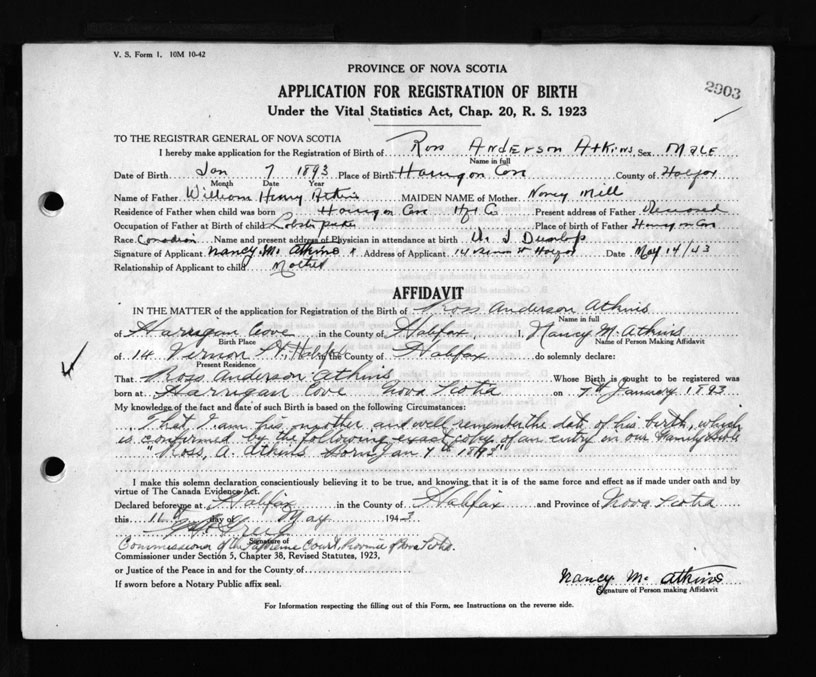 V. S. Form 1. 10M 10-42
PROVINCE OF NOVA SCOTIA
2903
APPLICATION FOR REGISTRATION OF BIRTH
Under the Vital Statistics Act, Chap. 20, R. S. 1923
TO THE REGISTRAR GENERAL OF NOVA SCOTIA
I hereby make application for the Registration of Birth of Ross Anderson Atkins Sex Male
Name in full
Date of Birth Jan 7 1893 Place of Birth Harrigan Cove County of Halifax
Month Date Year
Name of Father William Henry Atkins MAIDEN NAME of Mother Nancy Mill
Residence of Father when child was born Harrigan Cove Hfx Co Present address of Father Deceased
Occupation of Father at Birth of child Lobster Place of birth of Father Harrigan Cove
Race Canadian Name and present address of Physician in attendance at birth Dr. Dunlop
Signature of Applicant Nancy M. Atkins x Address of Applicant 14 Vernon St Halifax Date May 14/43
Relationship of Applicant to child Mother
AFFIDAVIT
IN THE MATTER of the application for Registration of the Birth of Ross Anderson Atkins
Name in full
of Harrigan Cove in the County of Halifax, I, Nancy M. Atkins
Birth Place Name of Person Making Affidavit
of 14 Vernon St., Halifax in the County of Halifax do solemnly declare:
Present Residence
That Ross Anderson Atkins Whose Birth is sought to be registered was
born at Harrigan Cove Nova Scotia on 7th January 1893
My knowledge of the fact and date of such Birth is based on the following Circumstances:
That I am his mother and well remember the date of his birth, which
is confirmed by the following exact copy of an entry in our Family Bible
"Ross, A. Atkins Born Jan 7th 1893"
I make this solemn declaration conscientiously believing it to be true, and knowing that it is of the same force and effect as if made under oath and by
virtue of The Canada Evidence Act.
Declared before me at Halifax in the County of Halifax and Province of Nova Scotia
this day of May 1943
Signature of
Commissioner of the Supreme Court, Province of Nova Scotia.
Commissioner under Section 5, Chapter 38, Revised Statutes, 1923,
or Justice of the Peace in and for the County of
If sworn before a Notary Public affix seal.
Nancy M. Atkins
Signature of Person making Affidavit
For Information respecting the filling out of this Form, see Instructions on the reverse side.